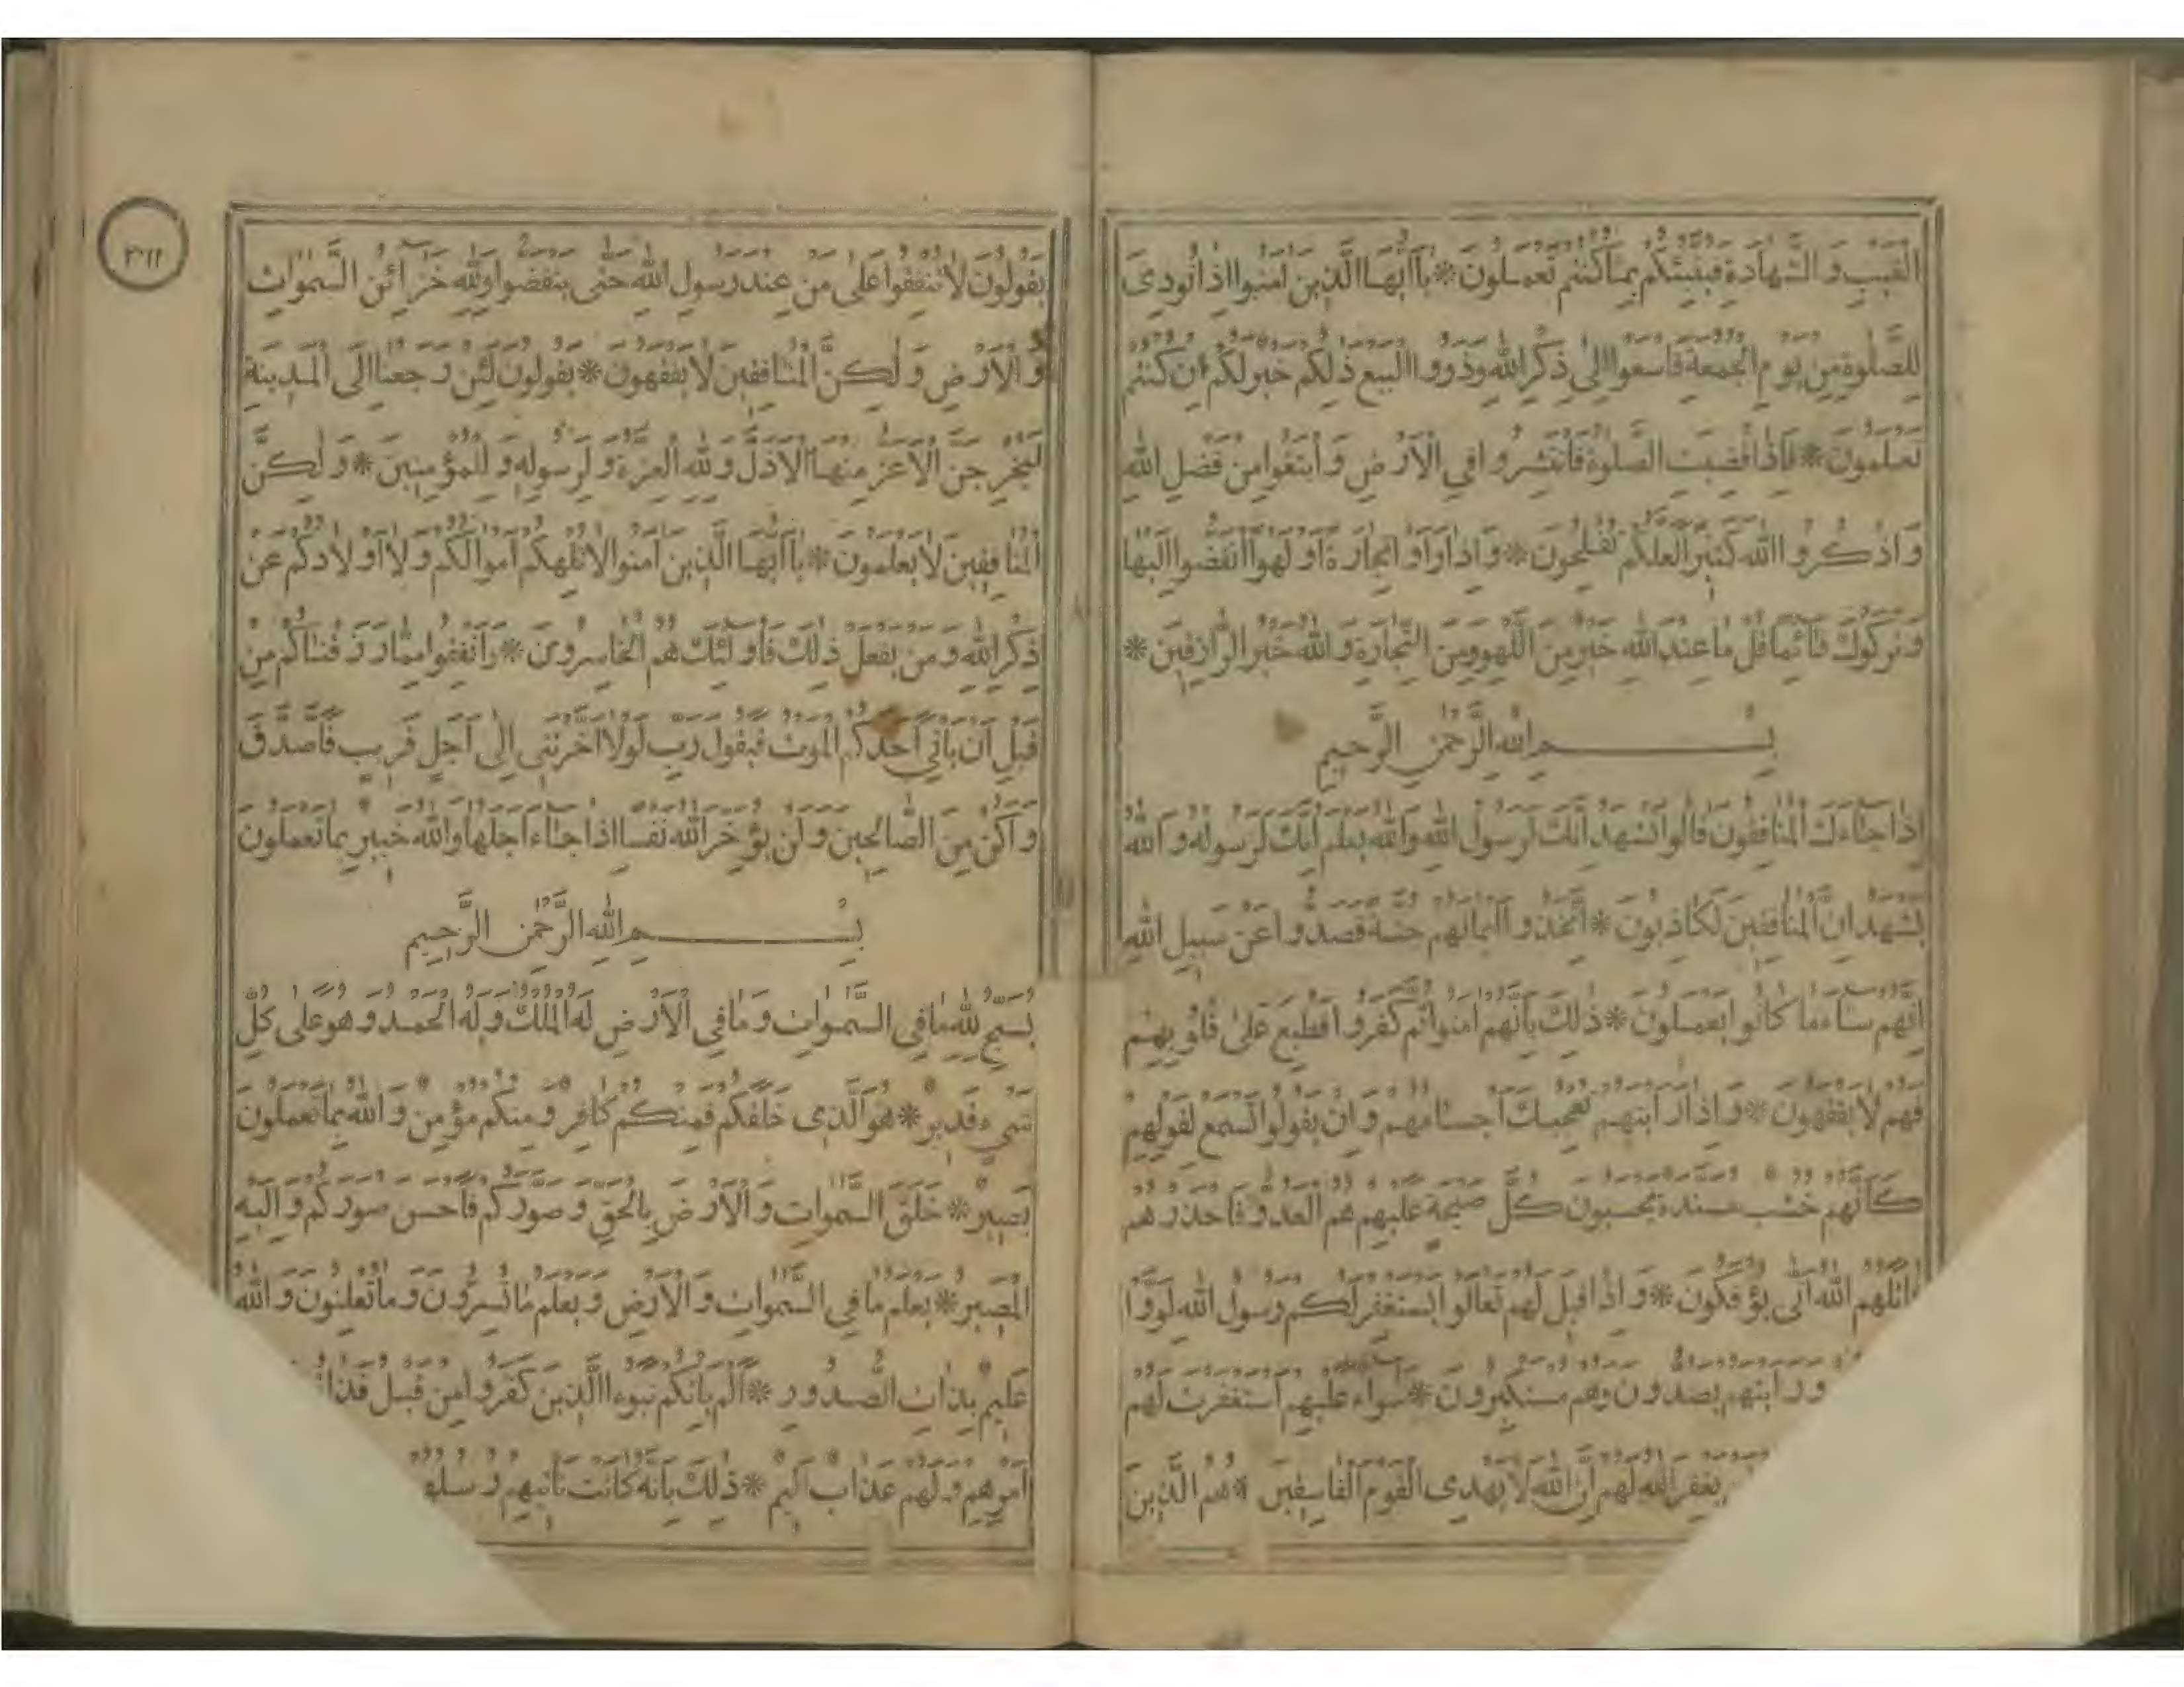 الغيب والشهادة فينبئكم بما كنتم تعملون * يا ايها الذين امنوا اذا نودى
للصلوة من يوم الجمعة فاسعوا الى ذكر الله وذروا البيع ذلكم خير لكم ان كنتم
تعلمون * فاذا قضيت الصلوة فانتشروا في الارض وابتغوا من فضل الله
واذكروا الله كثيرا لعلكم تفلحون * واذا راوا تجارة او لهوا انفضوا اليها
وتركوك قائما قل ما عند الله خير من اللهو ومن التجارة والله خير الرازقين *
بسم الله الرحمن الرحيم
اذا جاءك المنافقون قالوا نشهد انك لرسول الله والله يعلم انك لرسوله والله
يشهد ان المنافقين لكاذبون * اتخذوا ايمانهم جنة فصدوا عن سبيل الله
انهم ساء ما كانوا يعملون * ذلك بانهم امنوا ثم كفروا فطبع على قلوبهم
فهم لا يفقهون * واذا رايتهم تعجبك اجسامهم وان يقولوا تسمع لقولهم
كانهم خشب مسندة يحسبون كل صيحة عليهم هم العدو فاحذرهم
قاتلهم الله انى يؤفكون * واذا قيل لهم تعالوا يستغفر لكم رسول الله لووا
ورايتهم يصدون وهم مستكبرون * سواء عليهم استغفرت لهم
يغفر الله لهم ان الله لا يهدى القوم الفاسقين * هم الذين
٣٠١١
يقولون لا تنفقوا على من عند رسول الله حتى ينفضوا ولله خزائن السموات
والارض ولكن المنافقين لا يفقهون * يقولون لئن رجعنا الى المدينة
ليخرجن الاعز منها الاذل ولله العزة ولرسوله وللمؤمنين * ولكن
المنافقين لا يعلمون * يا ايها الذين امنوا لا تلهكم اموالكم ولا اولادكم عن
ذكر الله ومن يفعل ذلك فاولئك هم الخاسرون * وانفقوا مما رزقناكم من
قبل ان ياتي احدكم الموت فيقول رب لولا اخرتنى الى اجل قريب فاصدق
واكن من الصالحين ولن يؤخر الله نفسا اذا جاء اجلها والله خبير بما تعملون
بسم الله الرحمن الرحيم
يسبح لله ما في السموات وما في الارض له الملك وله الحمد وهو على كل
شيء قدير * هو الذى خلقكم فمنكم كافر ومنكم مؤمن والله بما تعملون
بصير * خلق السموات والارض بالحق وصوركم فاحسن صوركم واليه
المصير * يعلم ما في السموات والارض ويعلم ما تسرون وما تعلنون والله
عليم بذات الصدور * الم ياتكم نبوء الذين كفروا من قبل فذاقوا
امرهم ولهم عذاب اليم * ذلك بانه كانت تاتيهم رسلهم